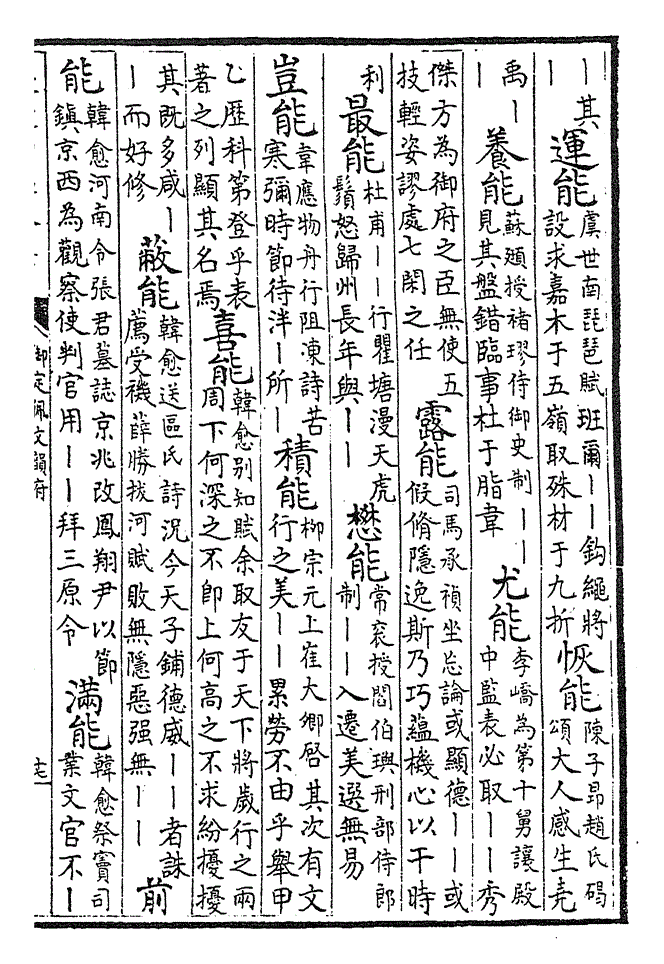 ｜其
運能
虞世南琵琶賦班爾｜｜鈎繩將
設求嘉木于五嶺取殊材于九折
恢能
陳子昂趙氏碣
頌大人感生尭
禹｜
｜
養能
蘇頲授褚璆侍御史制｜｜
見其盤錯臨事杜于脂韋
尤能
李嶠為第十舅讓殿
中監表必取｜｜秀
傑方為御府之臣無使五
技輕姿謬處七閑之任
露能
司馬承禎坐忘論或顯德｜｜或
假脩隱逸斯乃巧蘊機心以干時
利
最能
杜甫｜｜行瞿塘漫天虎
鬚怒歸州長年與｜｜
懋能
常衮授閻伯璵刑部侍郎
制｜｜入遷美選無易
豈能
韋應物舟行阻凍詩苦
寒彌時節待泮｜所｜
積能
柳宗元上崔大卿啓其次有文
行之美｜｜累勞不由乎舉甲
乙歷科第登乎表
著之列顯其名焉
喜能
韓愈別知賦余取友于天下將歲行之兩
周下何深之不卽上何高之不求紛擾擾
其既多咸｜
｜而好修
蔽能
韓愈送區氏詩況今天子鋪德威｜｜者誅
薦受禨薛勝拔河賦敗無隱惡强無｜｜
前
能
韓愈河南令張君墓誌京兆改鳳翔尹以節
鎮京西為觀察使判官用｜｜拜三原令
滿能
韓愈祭竇司
業文官不｜
御定佩文韻府